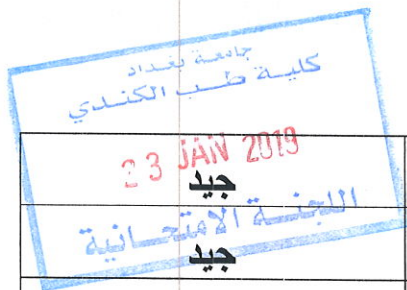 جامعة بغداد
كلية طب الكندي
23 JAN 2019
جيد
اللجنة الامتحانية
جيد